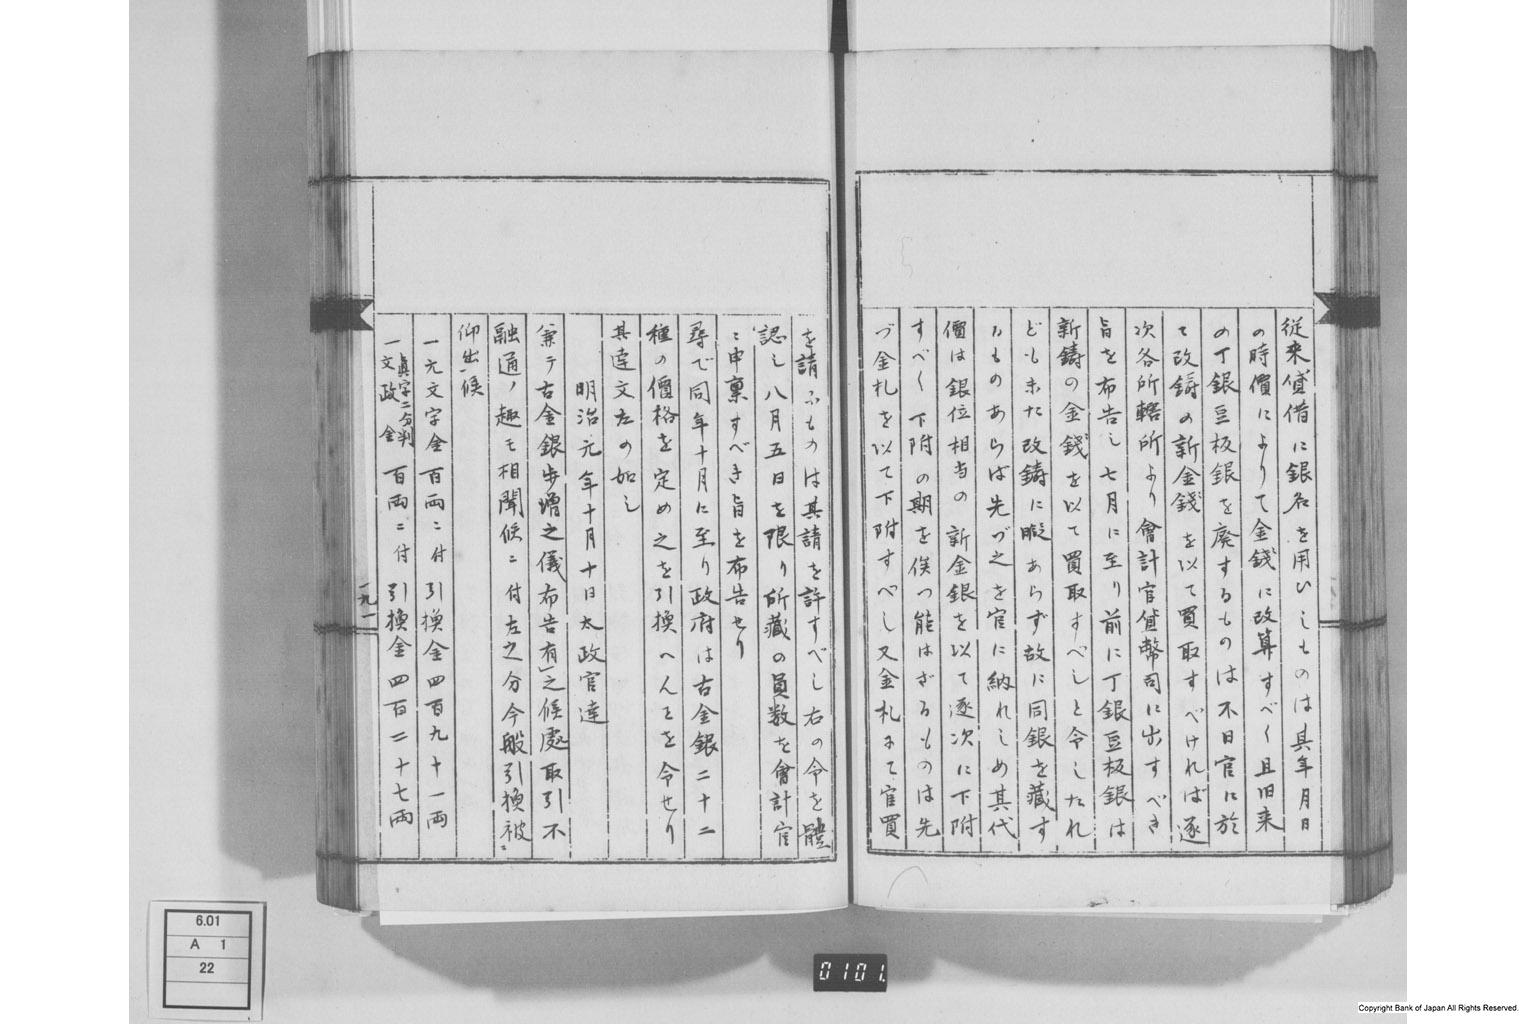 従来貸借に銀名を用ひしものは其年月日
の時價によりて金錢に改算すべく且旧来
の丁銀豆板銀を廃するものは不日官に於
て改鋳の新金錢を以て買取すべければ逐
次各所轄所より會計官貨幣司に出すべき
旨を布告し七月に至り前に丁銀豆板銀は
新鋳の金錢を以て買取すべしと令したれ
ども未た改鋳に暇あらず故に同銀を藏す
るものあらば先づ之を官に納れしめ其代
價は銀位相当の新金銀を以て逐次に下附
すべく下附の期を俟つ能はざるものは先
づ金札を以て下附すべし又金札にて官買
を請ふものは其請を許すべし右の令を體
認し八月五日を限り所藏の員数を會計官
ニ申稟すべき旨を布告せり
尋で同年十月に至り政府は古金銀二十二
種の價格を定め之を引換へんことを令せり
其達文左の如し
明治元年十月十日太政官達
兼テ古金銀歩増之儀布告有之候處取引不
融通ノ趣モ相聞候ニ付左之分今般引換被
仰出候
一元文字金百両ニ付 引換金四百九十一両
一眞字二分判 文政金 百両ニ付 引換金四百二十七両
一九一
6.01
A 1
22
0101.
Copyright Bank of Japan All Rights Reserved.